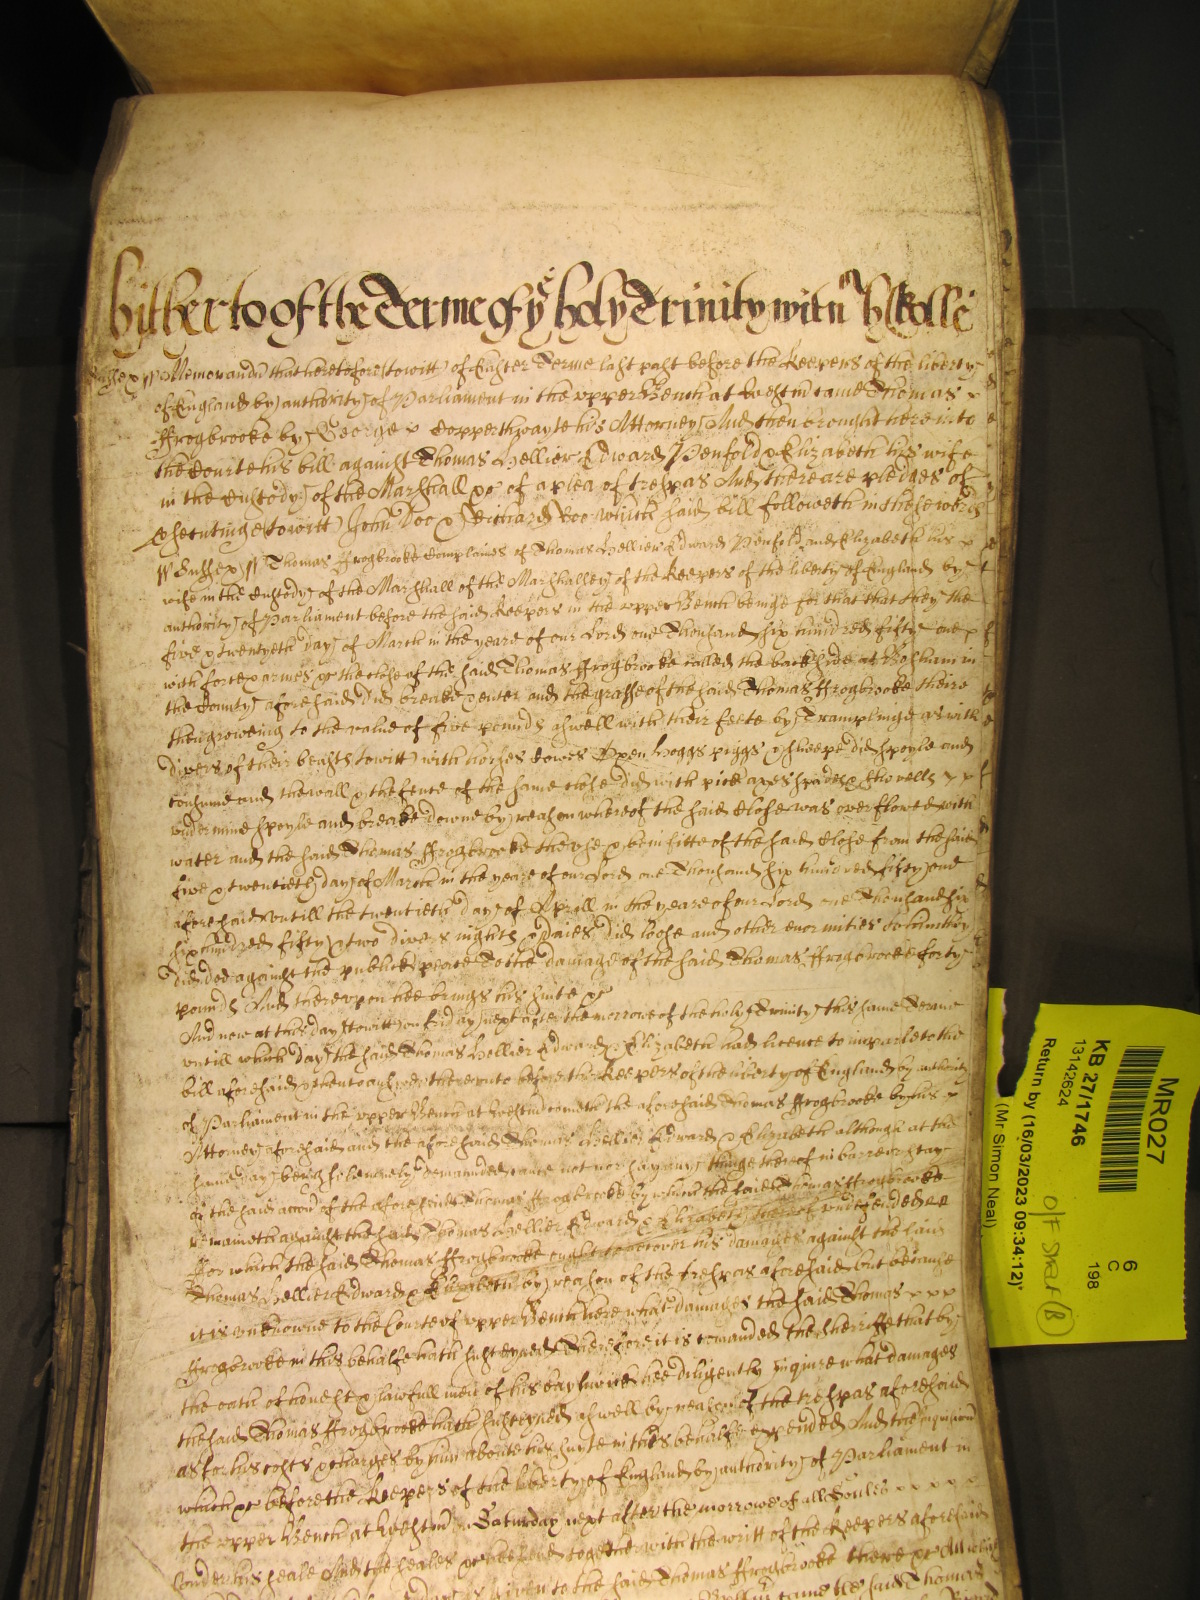 hitherto of the Terme of ye holy Trinity witn H Rolle
Sussex ss Memorand that heretofore (towitt) of Easter Terme last past before the Keepers of the liberty
of England by authority of Parliament in the vpper Bench at Westm came Thomas x
ffrogbrooke by George x Copperthwayte his Attorney And then brought here into
the Courte his bill against Thomas Hellier Edward Penfold & Elizabeth his wife
in the Custody of the Marshall &c of a plea of trespas And there are pledges of
p'secutinge (towitt) John Doo & Richard Roo which said bill followeth in these words
ss Sussex ss Thomas ffrogbrooke Complaines of Thomas Hellier Edward Penfold and Elizabeth his x
wife in the Custody of the Marshall of the Marshalley of the Keepers of the liberty of England by
authority of Parliament before the said Keepers in the vpper Bench beinge for that that they the
five & twentyeth day of March in the yeare of our Lord one Thousand six hundred fifty one x
with force & armes &c the close of the said Thomas ffrogbrooke called the backside at Bosham in
the County aforesaid did breake & enter and the grasse of the said Thomas ffrogbrooke theire
then groweing to the value of five pounds aswell with their feete by Tramplinge as with
divers of their beasts (towitt) with horses Cowes Oxen Hoggs piggs & sheepe did spoyle and
consume and the wall & the fence of the same close did with pick axes spades & showells x x
vndermine spoyle and breake downe by reason whereof the said Close was overflowed with
water and the said Thomas ffrogbrooke the vse & benifitte of the said Close from the said
five & twentieth day of March in the yeare of our Lord one Thousand six hundred fifty one
aforesaid vntill the twentieth day of Aprill in the yeare of our Lord one Thousand six
six hundred fifty & two divers nights & daies did loose and other enormities to him they
did doe against the publick peace To the damage of the said Thomas ffrogbrooke forty
pounds And therevpon hee brings his suite &c
And now at this day (towitt) on friday next after the morrowe of the holy Trinity this same Terme
vntill which day the said Thomas Hellier Edward & Elizabeth had licence to imparle to the
bill aforesaid & then to answer therevnto before the Keepers of the liberty of England by authority
of Parliament in the vpper Bench at Westm cometh the aforesaid Thomas ffrogbrooke by his x
Attorney aforesaid and the aforesaid Thomas Hellier Edward & Elizabeth although at the
same day being solemnely demaunded came not nor say any thinge thereof in barre or stay
of the said accon of the aforesaid Thomas ffrogbrooke by which the said Thomas ffrogbrooke
remaineth against the said Thomas Hellier Edward & Elizabeth thereof vndefended &c
ffor which the said Thomas ffrogbrooke ought to recover his damages against the said
Thomas Hellier Edward & Elizabeth by reason of the trespas aforesaid but because
it is vnknowne to the Courte of vpper Bench here what damages the said Thomas x x x
ffrogbrooke in this behalfe hath susteyned Therefore it is comanded the Sherriffe that by
the oath of honest & lawfull men of his baylywick hee diligently inquire what damages
the said Thomas ffrogbrooke hath susteyned aswell by reason of the trespas aforesaid
as for his costs & charges by him aboute his suyte in this behalfe expended And the inquisicon
which &c before the Keepers of the liberty of England by authority of Parliament in
the vpper Bench at Westm on Saturday next after the morrowe of all Soules x x x x x
vnder his seale And the seales &c hee send together with the writt of the Keepers aforesaid
day is given to the said Thomas ffrogbrooke there &c At which
came the said Thomas
MR027
KB 27/1746
13142624
Return by (16/03/2023 09:34:12)*
(Mr Simon Neal)
6
C
198
O/F Shelf (B)